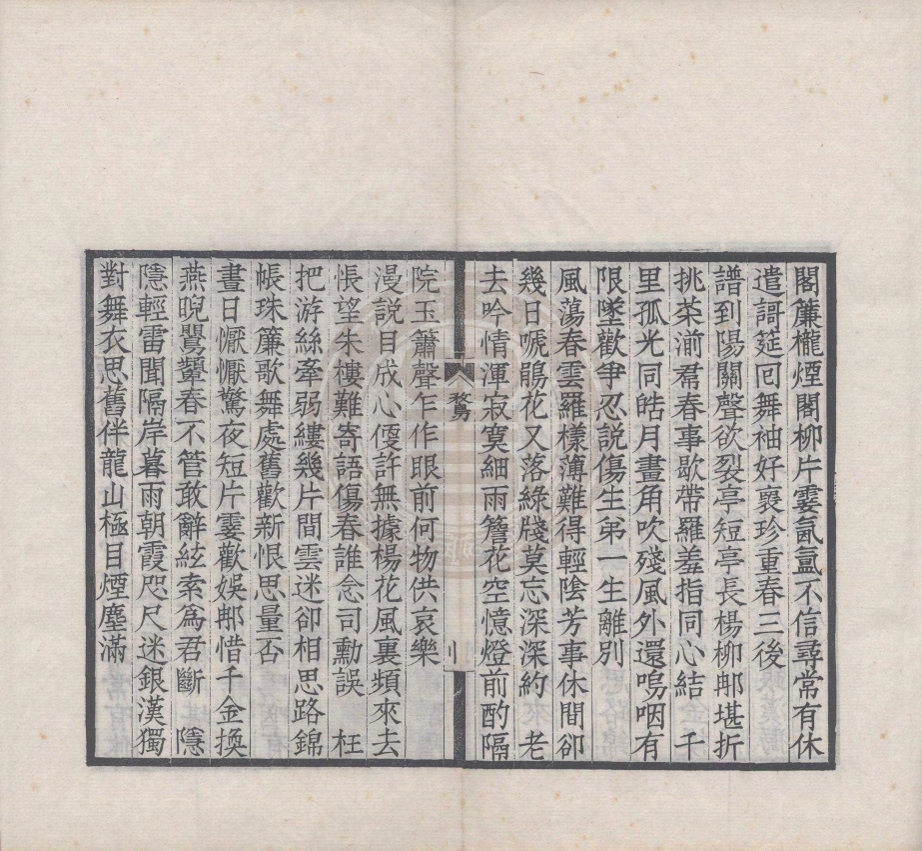 閣簾櫳煙閣柳片霎氤氳不信尋常有休
遣謌筵囘舞袖好裹珍重春三後
譜到陽關聲欲裂亭短亭長楊柳郍堪折
挑菜湔帬春事歇帶羅羞指同心結　千
里孤光同皓月畫角吹殘風外還嗚咽有
限墜歡爭忍說傷生弟一生離別
風蕩春雲羅樣薄難得輕陰芳事休閒卻
幾日嗁鵑花又落綠牋莫忘深深約　老
去吟情渾寂寞細雨簷花空憶燈前酌隔
鶩
院玉簫聲乍作眼前何物供哀樂
漫說目成心便許無據楊花風裏頻來去
悵望朱樓難寄語傷春誰念司勳誤　枉
把游絲牽弱縷幾片閒雲迷卻相思路錦
帳珠簾歌舞處舊歡新恨思量否
晝日懨懨驚夜短片霎歡娛郍惜千金換
燕睨鶯顰春不管敢辭絃索爲君斷　隱
隱輕雷聞隔岸暮雨朝霞咫尺迷銀漢獨
對舞衣思舊伴龍山極目煙塵滿